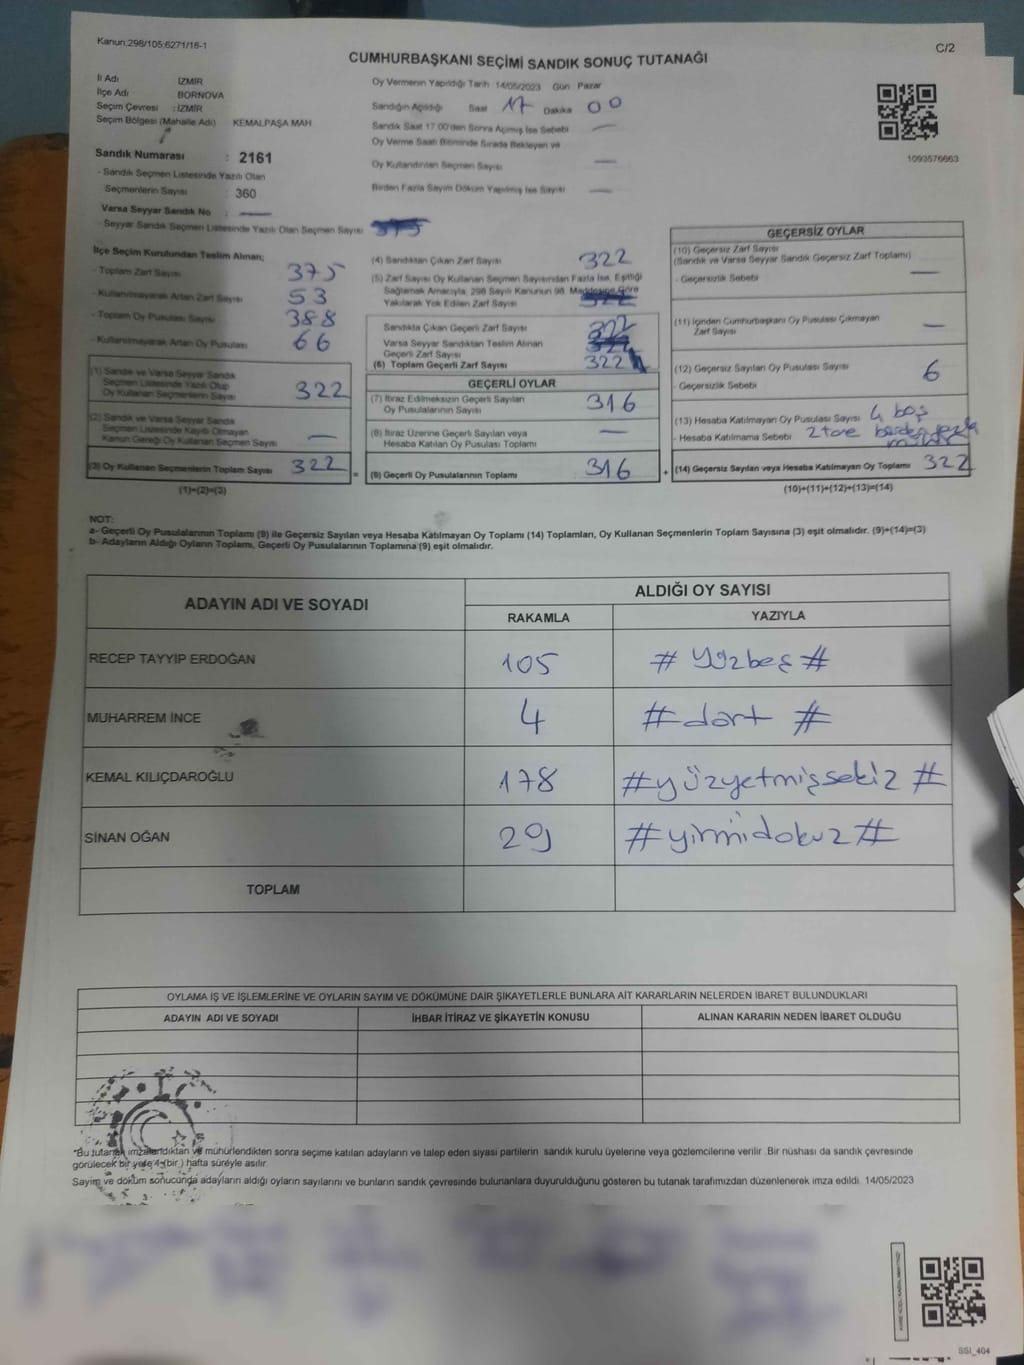 Kanun;298/105;6271/16-1
C/2
CUMHURBAŞKANI SEÇİMİ SANDIK SONUÇ TUTANAĞI
İl Adı İZMİR
İlçe Adı BORNOVA
Seçim Çevresi : İZMİR
Seçim Bölgesi (Mahalle Adı) KEMALPAŞA MAH
Sandık Numarası : 2161
- Sandık Seçmen Listesinde Yazılı Olan
Seçmenlerin Sayısı : 360
Varsa Seyyar Sandık No : —
- Seyyar Sandık Seçmen Listesinde Yazılı Olan Seçmen Sayısı
Oy Vermenin Yapıldığı Tarih 14/05/2023 Gün Pazar
Sandığın Açıldığı Saat 17 Dakika 00
Sandık Saat 17.00'den Sonra Açılmış İse Sebebi —
Oy Verme Saati Bitiminde Sırada Bekleyen ve
Oy Kullandırılan Seçmen Sayısı —
Birden Fazla Sayım Döküm Yapılmış İse Sayısı —
1093576663
İlçe Seçim Kurulundan Teslim Alınan;
- Toplam Zarf Sayısı 375
- Kullanılmayarak Artan Zarf Sayısı 53
- Toplam Oy Pusulası Sayısı 388
- Kullanılmayarak Artan Oy Pusulası 66
(1) Sandık ve Varsa Seyyar Sandık
Seçmen Listesinde Yazılı Olup
Oy Kullanan Seçmenlerin Sayısı 322
(2) Sandık ve Varsa Seyyar Sandık
Seçmen Listesinde Kayıtlı Olmayan
Kanun Gereği Oy Kullanan Seçmen Sayısı —
(3) Oy Kullanan Seçmenlerin Toplam Sayısı 322
(1)+(2)=(3)
(4) Sandıktan Çıkan Zarf Sayısı 322
(5) Zarf Sayısı Oy Kullanan Seçmen Sayısından Fazla İse, Eşitliği
Sağlamak Amacıyla, 298 Sayılı Kanunun 98. Maddesine Göre
Yakılarak Yok Edilen Zarf Sayısı
Sandıkta Çıkan Geçerli Zarf Sayısı 322
Varsa Seyyar Sandıktan Teslim Alınan
Geçerli Zarf Sayısı
(6) Toplam Geçerli Zarf Sayısı 322
GEÇERLİ OYLAR
(7) İtiraz Edilmeksizin Geçerli Sayılan
Oy Pusulalarının Sayısı 316
(8) İtiraz Üzerine Geçerli Sayılan veya
Hesaba Katılan Oy Pusulaları Toplamı —
= (9) Geçerli Oy Pusulalarının Toplamı 316 +
GEÇERSİZ OYLAR
(10) Geçersiz Zarf Sayısı
(Sandık ve Varsa Seyyar Sandık Geçersiz Zarf Toplamı)
- Geçersizlik Sebebi —
(11) İçinden Cumhurbaşkanı Oy Pusulası Çıkmayan
Zarf Sayısı —
(12) Geçersiz Sayılan Oy Pusulası Sayısı 6
- Geçersizlik Sebebi
(13) Hesaba Katılmayan Oy Pusulası Sayısı 4 boş
- Hesaba Katılmama Sebebi 2 tane birden fazla
(14) Geçersiz Sayılan veya Hesaba Katılmayan Oy Toplamı 322
(10)+(11)+(12)+(13)=(14)
NOT:
a- Geçerli Oy Pusulalarının Toplamı (9) ile Geçersiz Sayılan veya Hesaba Katılmayan Oy Toplamı (14) Toplamları, Oy Kullanan Seçmenlerin Toplam Sayısına (3) eşit olmalıdır. (9)+(14)=(3)
b- Adayların Aldığı Oyların Toplamı, Geçerli Oy Pusulalarının Toplamına (9) eşit olmalıdır.
ADAYIN ADI VE SOYADI ALDIĞI OY SAYISI
RAKAMLA YAZIYLA
RECEP TAYYİP ERDOĞAN 105 # Yüzbeş #
MUHARREM İNCE 4 # dört #
KEMAL KILIÇDAROĞLU 178 #yüzyetmişsekiz #
SİNAN OĞAN 29 #yirmidokuz #
TOPLAM
OYLAMA İŞ VE İŞLEMLERİNE VE OYLARIN SAYIM VE DÖKÜMÜNE DAİR ŞİKAYETLERLE BUNLARA AİT KARARLARIN NELERDEN İBARET BULUNDUKLARI
ADAYIN ADI VE SOYADI İHBAR İTİRAZ VE ŞİKAYETİN KONUSU ALINAN KARARIN NEDEN İBARET OLDUĞU
*Bu tutanak imzalandıktan ve mühürlendikten sonra seçime katılan adayların ve talep eden siyasi partilerin sandık kurulu üyelerine veya gözlemcilerine verilir. Bir nüshası da sandık çevresinde
görülecek bir yere 1 (bir) hafta süreyle asılır.
Sayım ve döküm sonucunda adayların aldığı oyların sayılarını ve bunların sandık çevresinde bulunanlara duyurulduğunu gösteren bu tutanak tarafımızdan düzenlenerek imza edildi. 14/05/2023
SSI_404